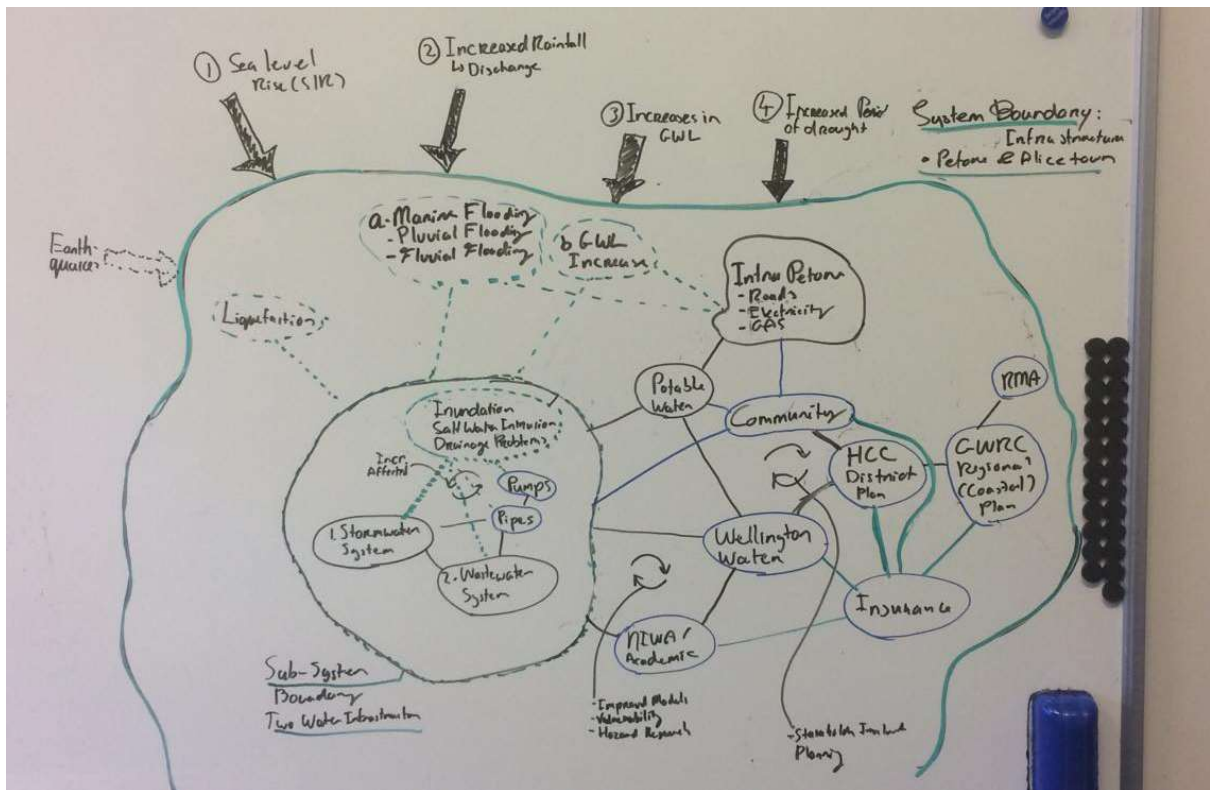 ① Sea level
Rise (SLR)
② Increased Rainfall
↳ Discharge
③ Increases in
GWL
④ Increased Period
of drought
System Boundary:
Infrastructure
• Petone & Alicetown
Earth-
quakes
a. Marine Flooding
- Pluvial Flooding
- Fluvial Flooding
b GWL
Increase
Liquefaction
Infra Petone
- Roads
- Electricity
- GAS
Potable
Water
Community
RMA
HCC
District
Plan
GWRC
Regional
(Coastal)
Plan
Inundation
Salt Water Intrusion
Drainage Problems
Incr.
Affected
Pumps
Pipes
1. Stormwater
System
2. Wastewater
System
Wellington
Water
Insurance
NIWA/
Academic
Sub-System
Boundary
Two Water Infrastructure
- Improved Models
- Vulnerability
- Hazard Research
- Stakeholder
Planning